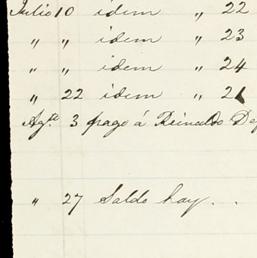 Julio 10 idem " 22
" " idem " 23
" " idem " 24
" 22 idem " 21
Agto 3 pago á Reinaldo
" 27 Saldo hoy . .